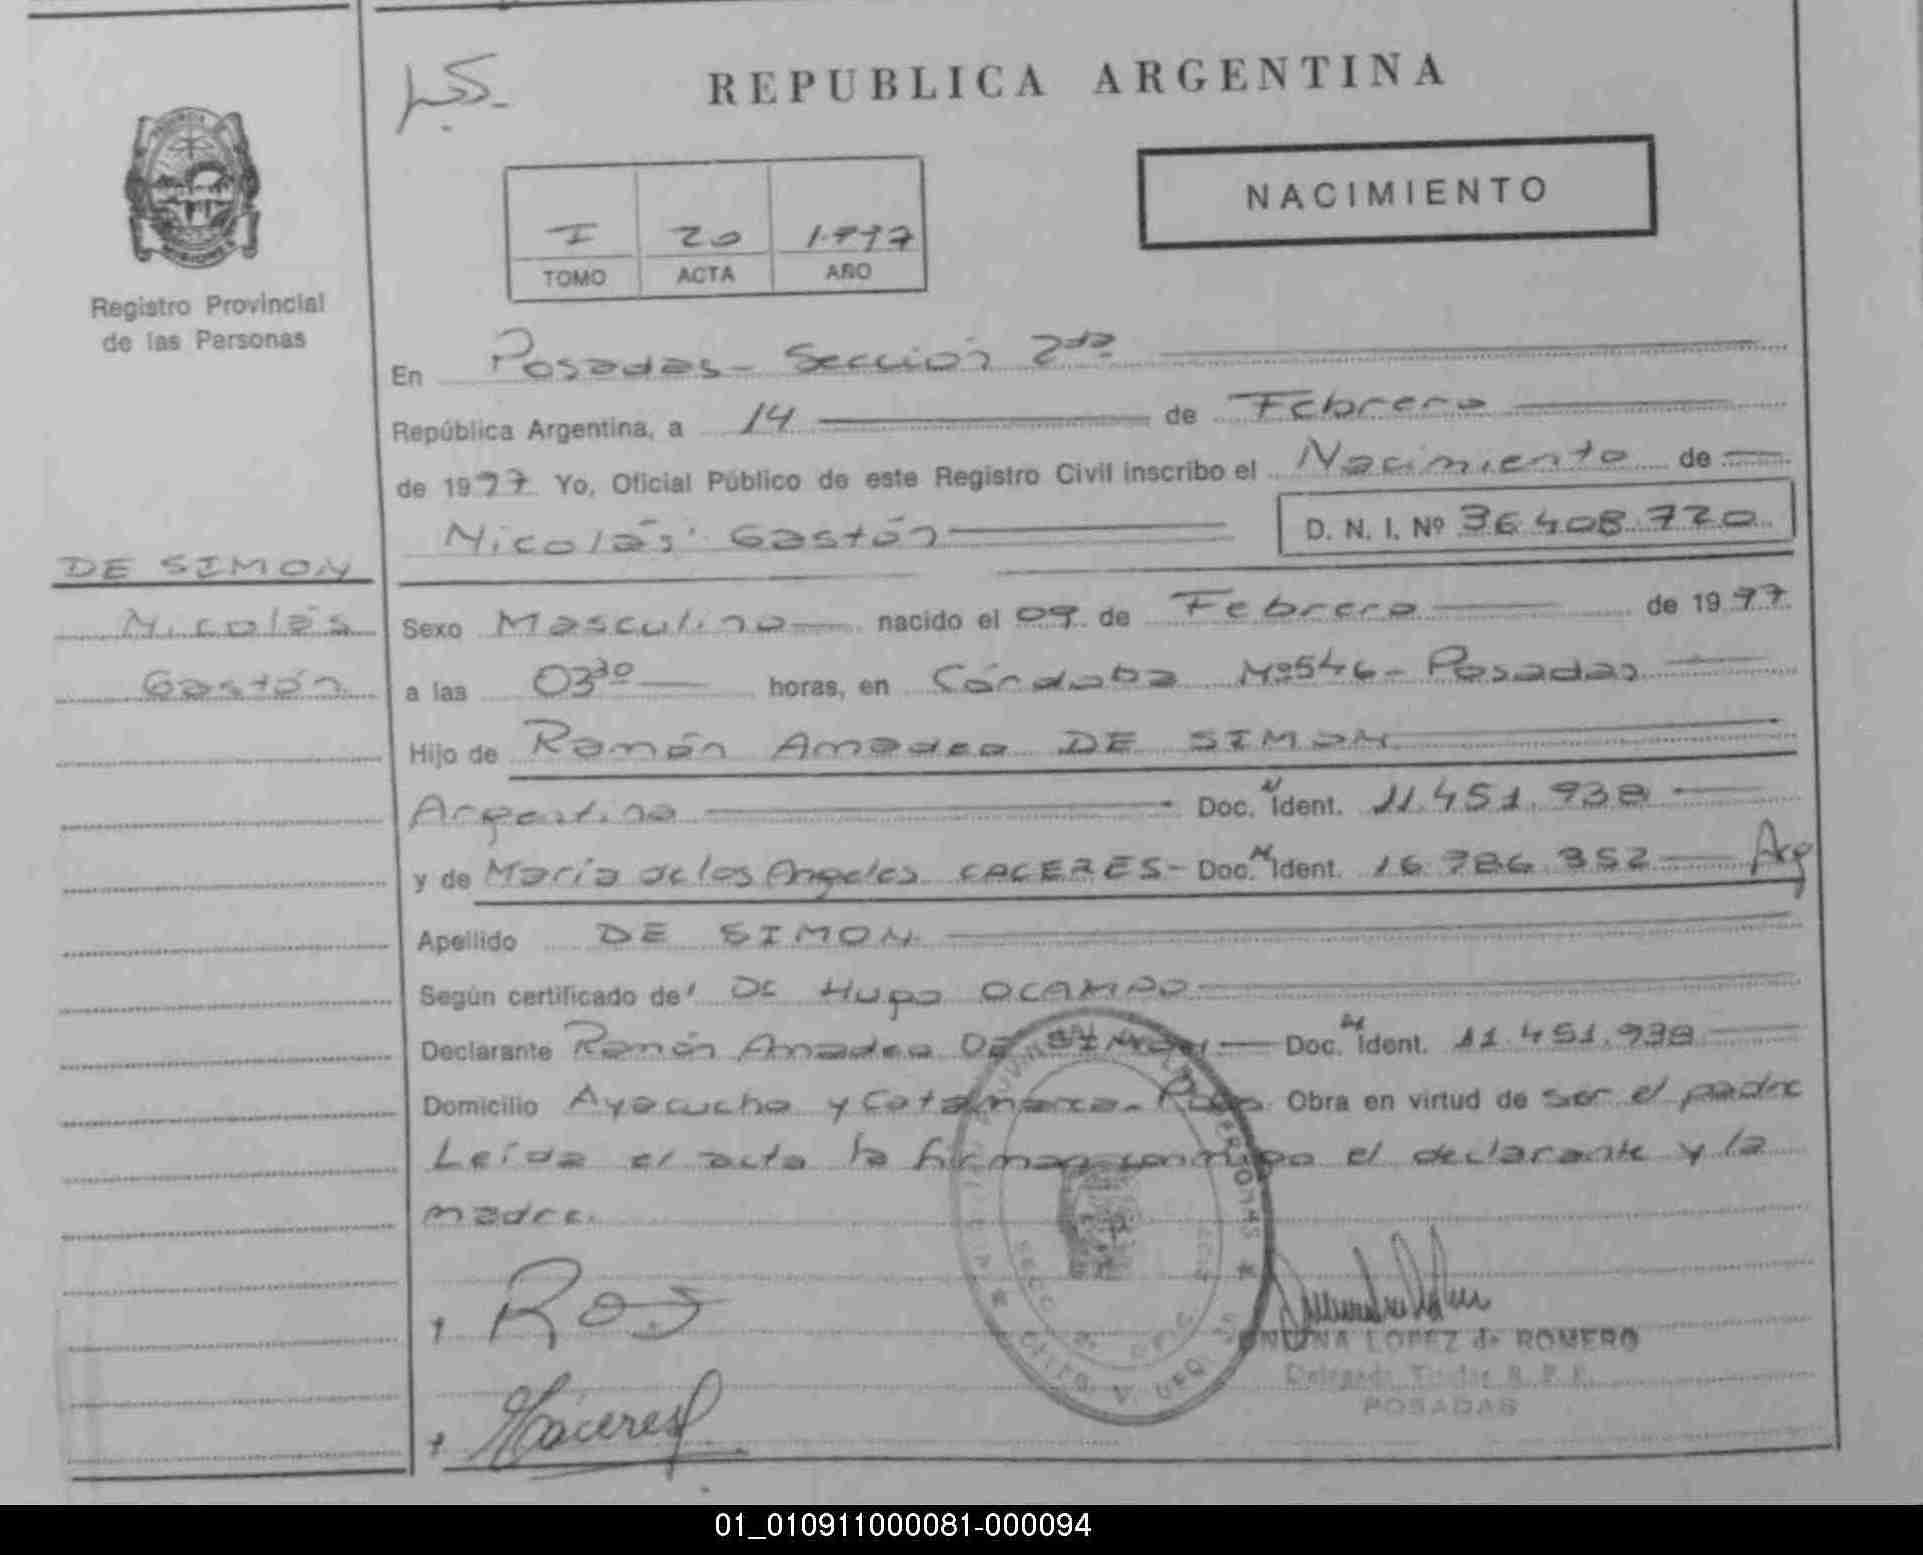 REPUBLICA ARGENTINA
NACIMIENTO
I 20 1.997
TOMO ACTA AÑO
Registro Provincial
de las Personas
En Posadas - Sección 2da
República Argentina, a 14 de Febrero
de 1997 Yo, Oficial Público de este Registro Civil inscribo el Nacimiento de
Nicolás Gastón D. N. I. Nº 36.408.720
DE SIMON
Nicolás
Gastón
Sexo Masculino nacido el 09 de Febrero de 1997
a las 03 30 horas, en Córdoba Nº 546 - Posadas
Hijo de Ramón Amadeo DE SIMON
Argentino Doc. N Ident. 11.451.938
y de María de los Angeles CACERES - Doc. N Ident. 16.786.352 Arg
Apellido DE SIMON
Según certificado de Hugo OCAMPO
Declarante Ramón Amadeo DE SIMON Doc. N Ident. 11.451.938
Domicilio Ayacucho y Catamarca - Obra en virtud de ser el padre
Leída el acta la firman conmigo el declarante y la
madre.
Caceres
LOPEZ de ROMERO
Delegada Titular R. P. P.
POSADAS
01_010911000081-000094